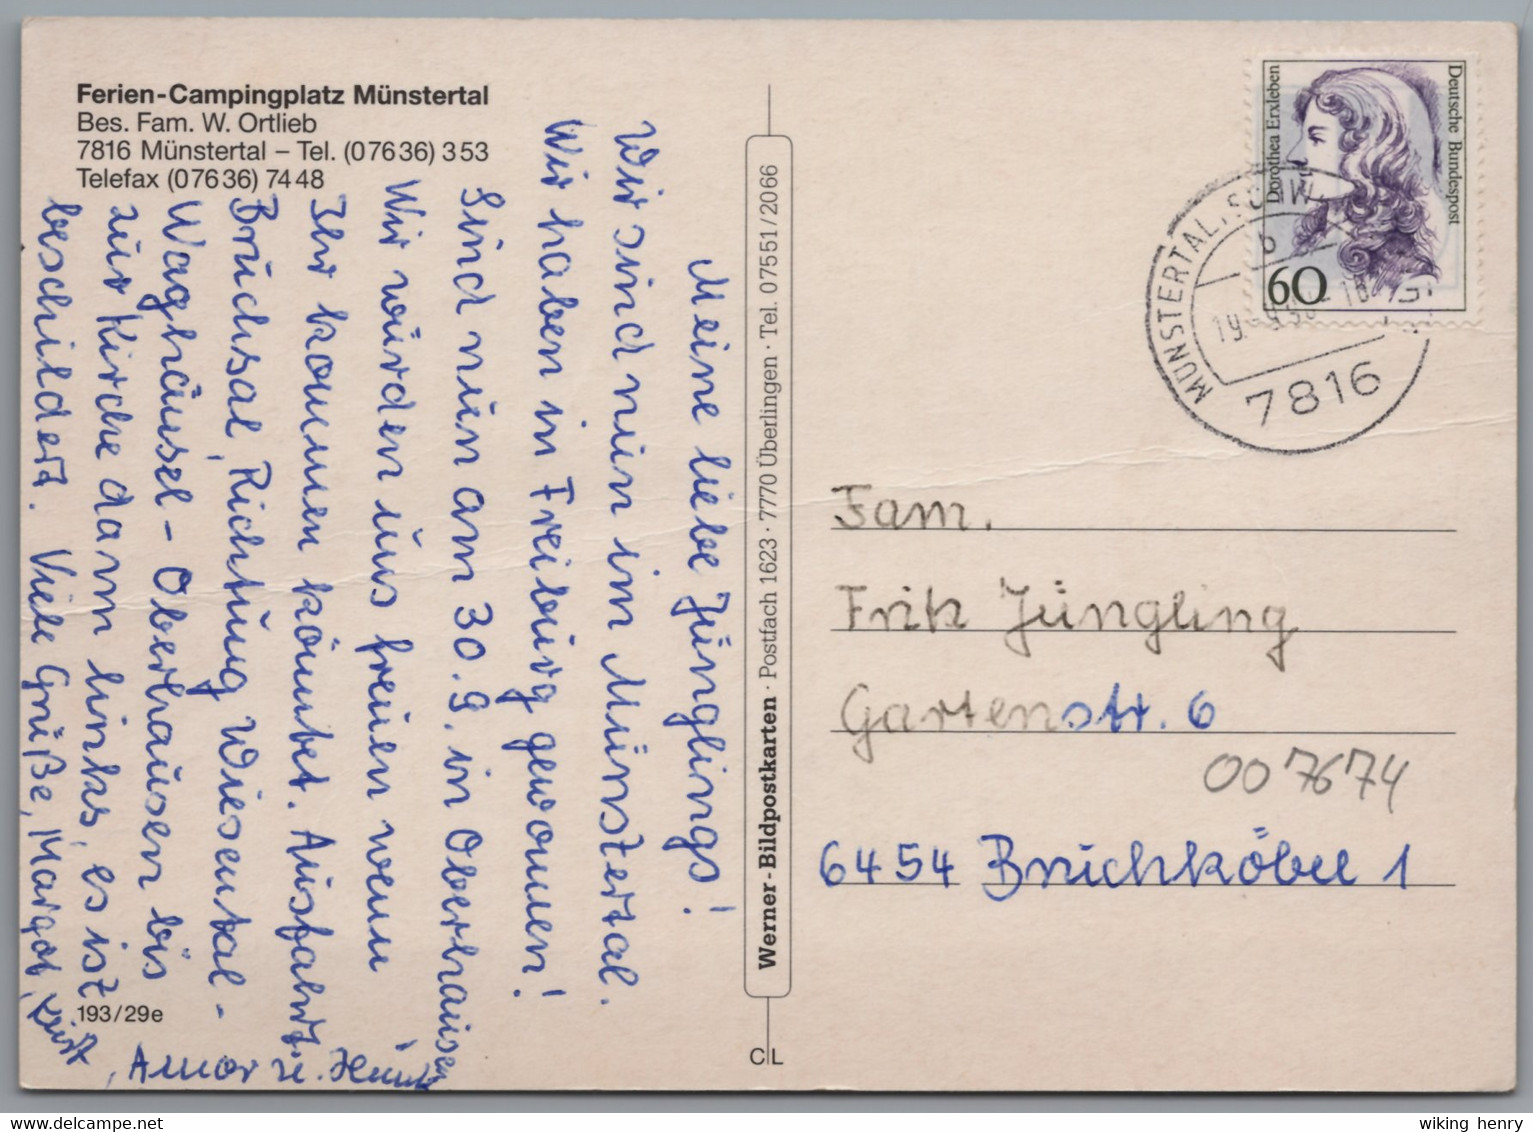 Ferien-Campingplatz Münstertal
Bes. Fam. W. Ortlieb
7816 Münstertal – Tel. (07636) 353
Telefax (07636) 7448
Meine liebe Jünglings!
Wir sind nun im Münstertal.
Wir haben in Freiburg gewonnen!
Sind nun am 30.9. in Oberhausen
Wir würden uns freuen wenn
Ihr kommen könntet. Ausfahrt:
Bruchsal, Richtung Wiesental-
Waghäusel - Oberhausen bis
zur Kirche dann links, es ist
beschildert. Viele Grüße, Margot,
Kurt
, Amor u.
193/29e
Werner-Bildpostkarten · Postfach 1623 · 7770 Überlingen · Tel. 07551/2066
C L
Deutsche Bundespost
Dorothea Erxleben
60
MÜNSTERTAL, SCHW
b
7816
Fam.
Fritz Jüngling
Gartenstr. 6
007674
6454 Bruchköbel 1
wiking henry